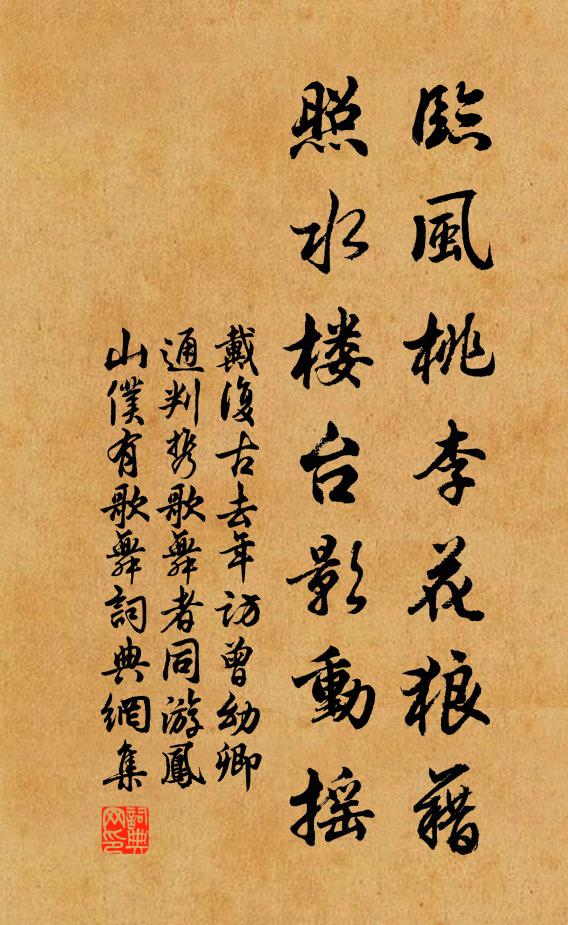 臨風桃李花狼藉
照水楼台影動摇
戴復古去年訪曾幼卿
通判携歌舞者同游鳳
山僕有歌舞詞典網集
詞典网印